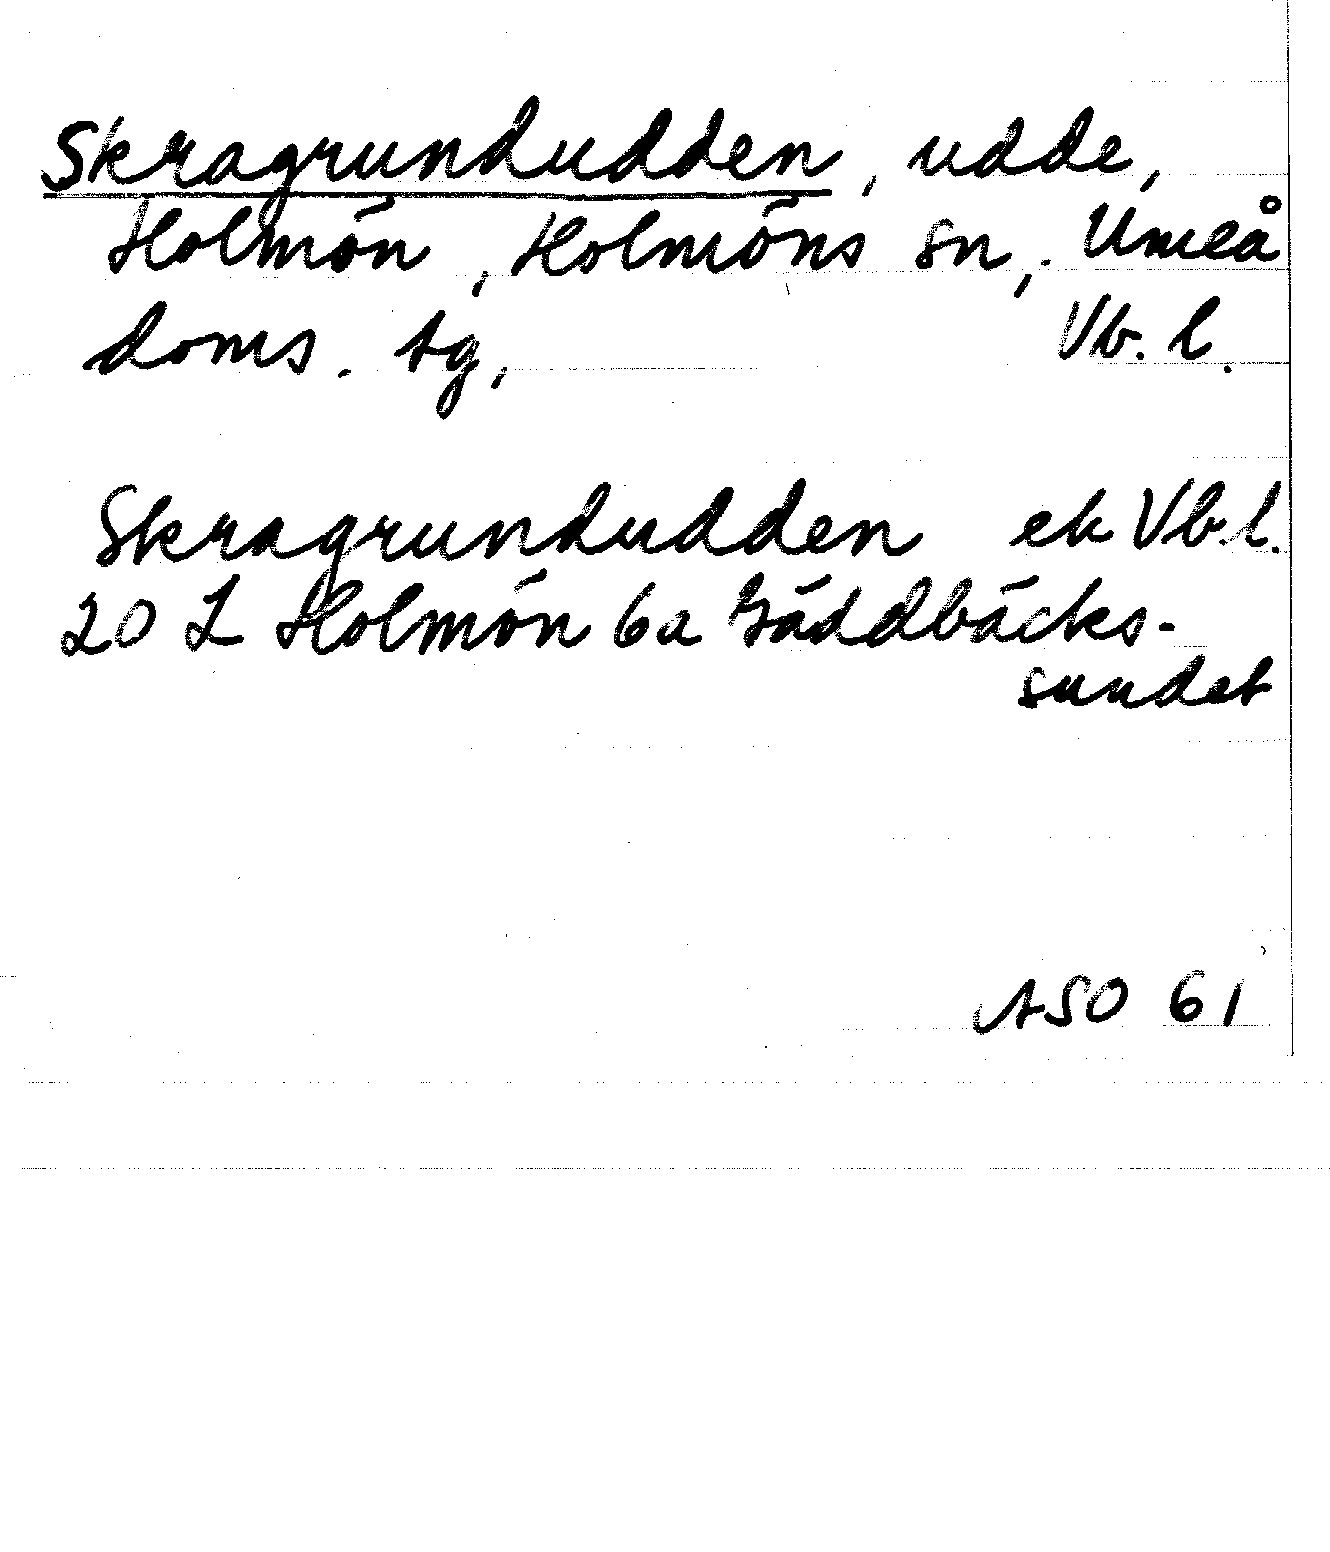 Skragrundudden, udde,
Holmön, Holmöns sn, Umeå
doms. tg, Vb. l.
Skragrundudden ek Vb.l.
20 L Holmön 6a Gäddbäcks-
sundet
ASO 61